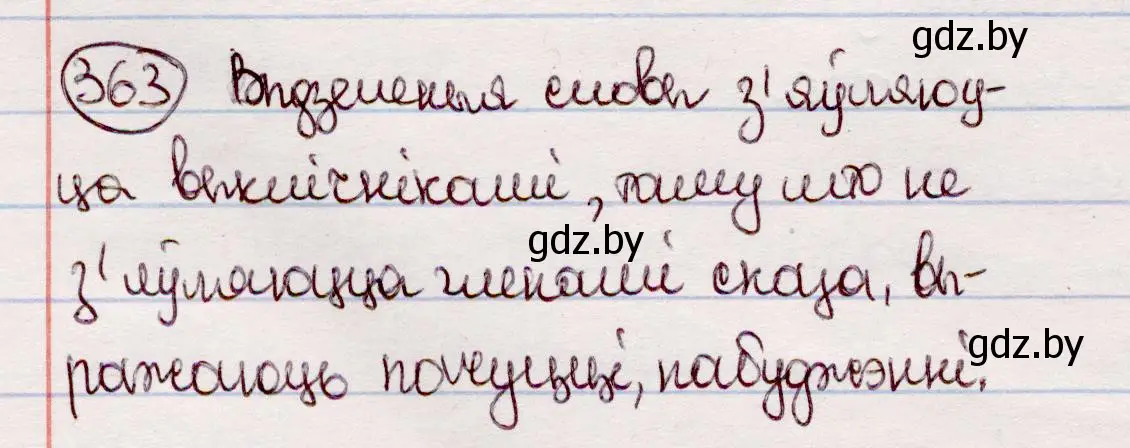 gdz.by
363 Выдзеленыя словы з'яўляюц-
ца выклічнікамі, таму што не
gdz.by
з'яўляюцца членамі сказа, вы-
ражаюць пачуцці, пабуджэнні.
gdz.by